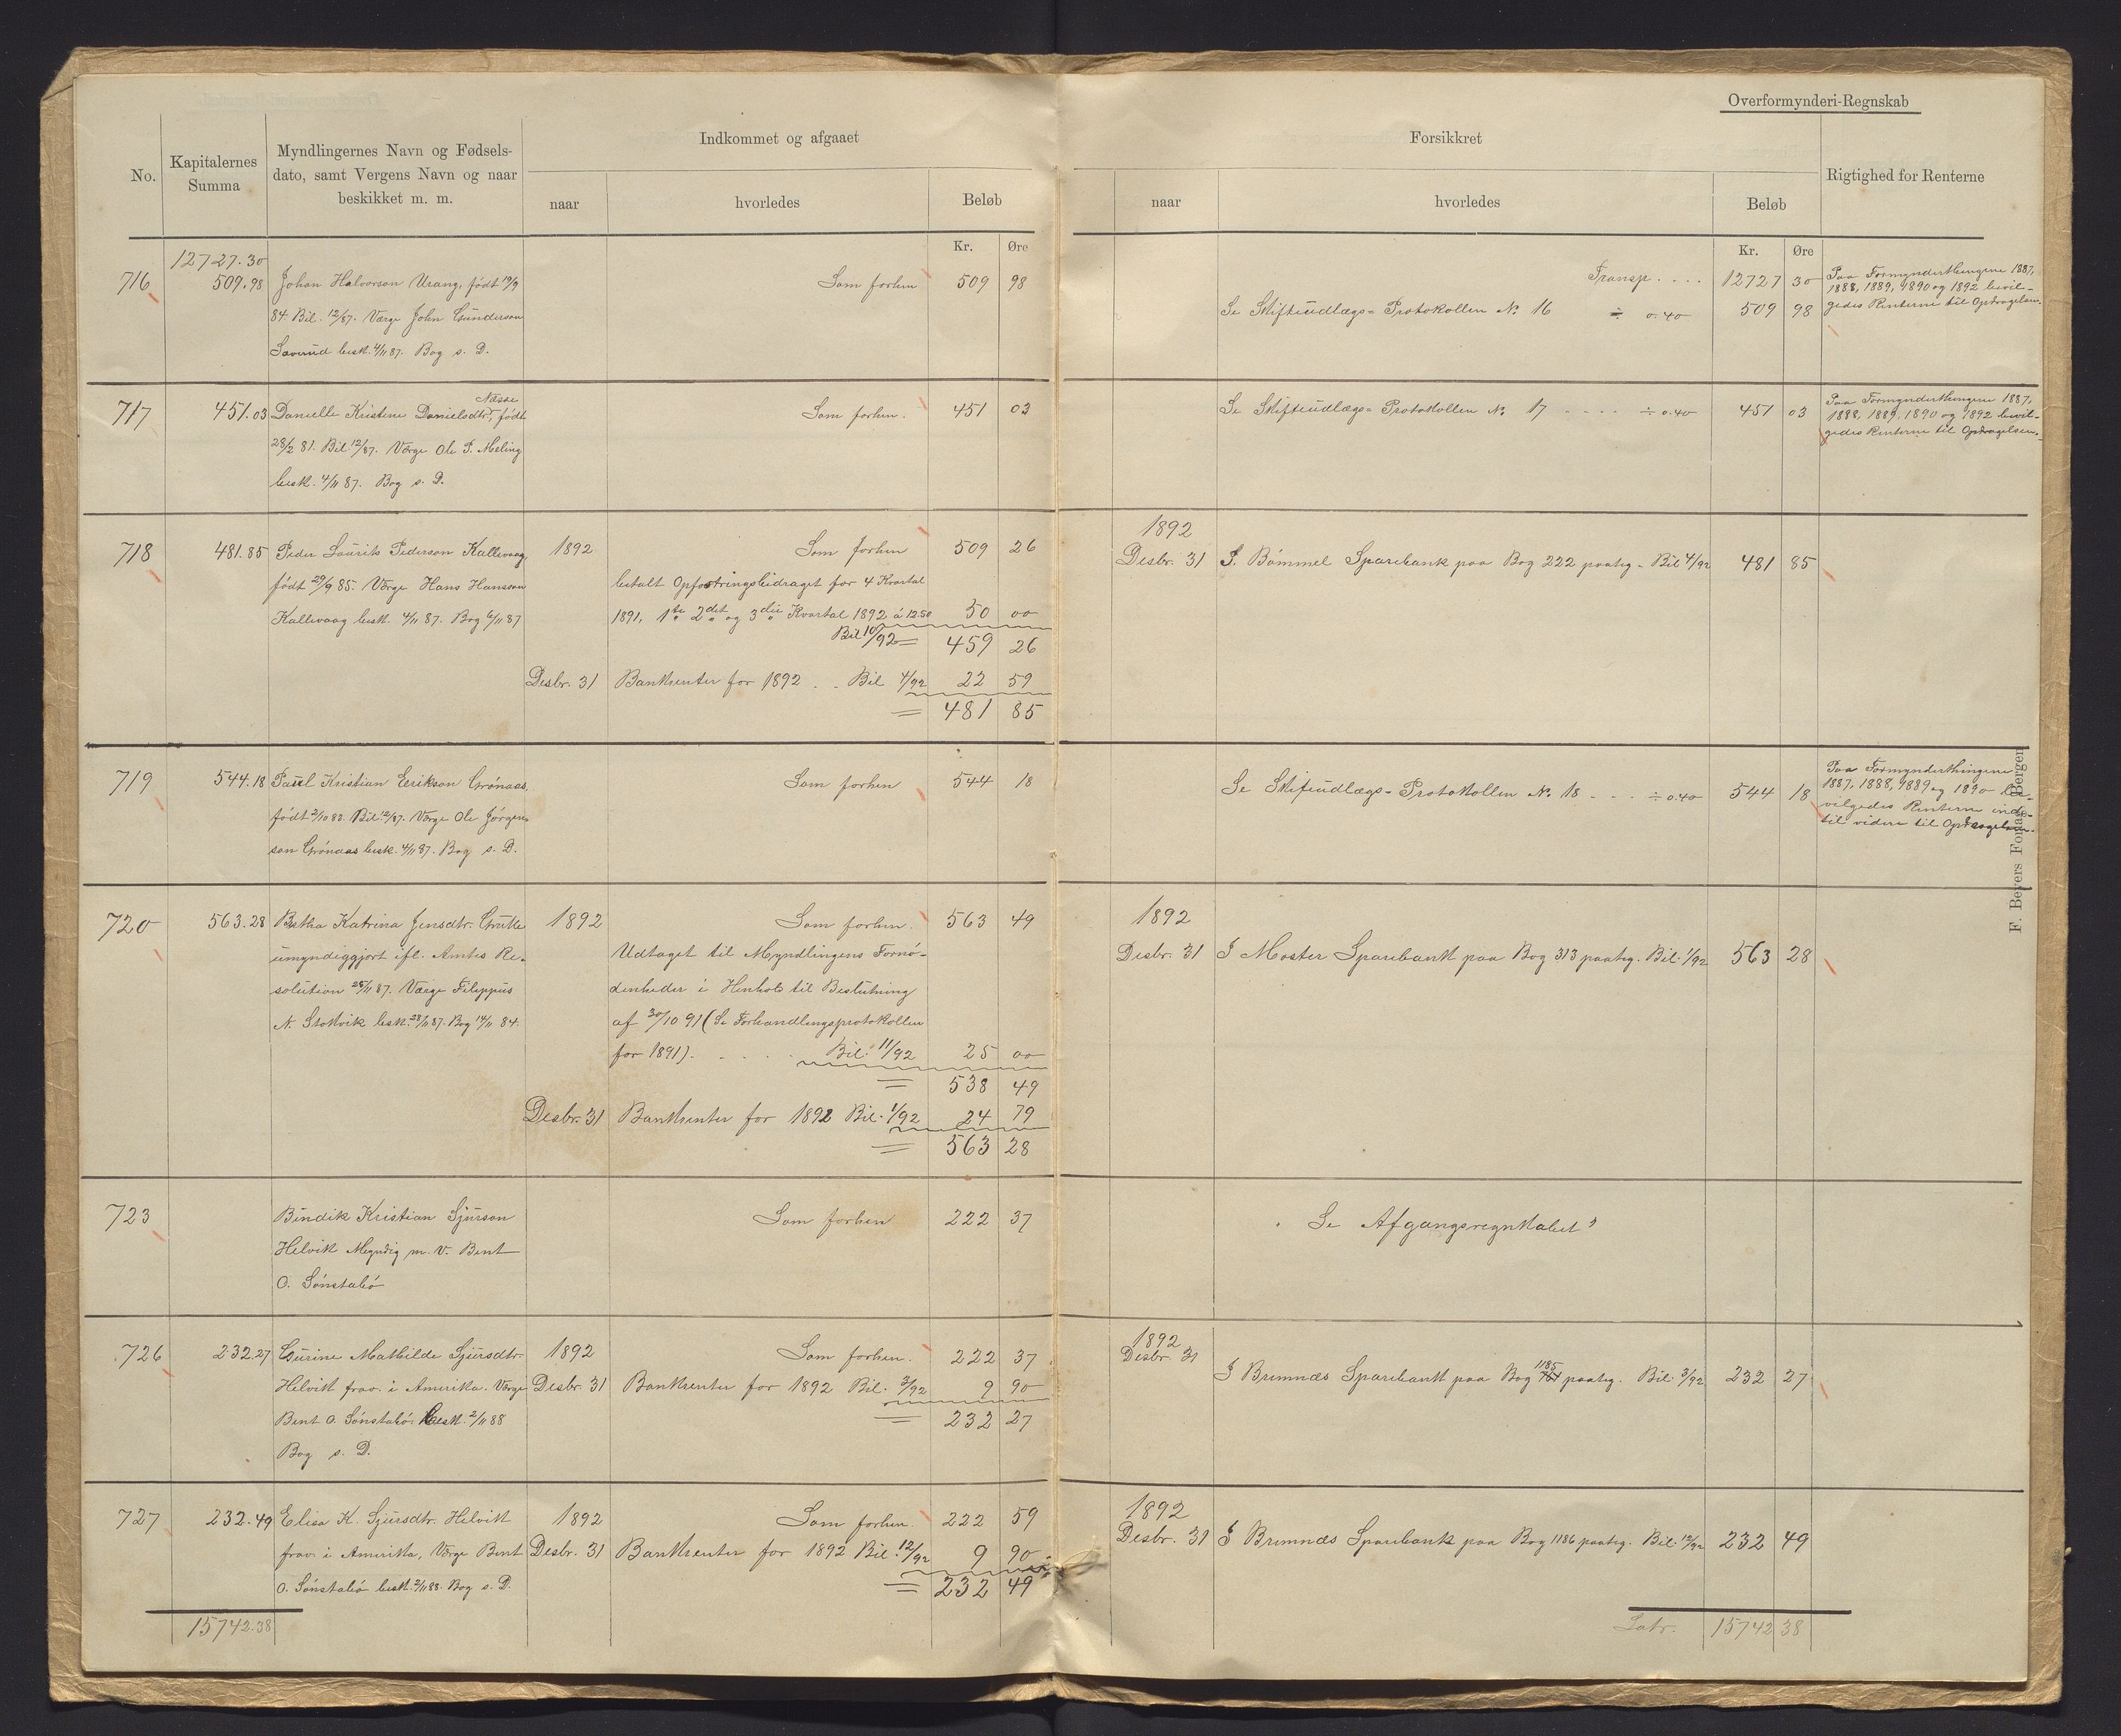 Overformynderi-Regnskab
No.
Kapitalernes Summa
Myndlingernes Navn og Fødsels-
dato, samt Vergens Navn og naar
beskikket m. m.
Indkommet og afgaaet
naar
hvorledes
Beløb
Kr. Øre
Forsikkret
naar
hvorledes
Beløb
Kr. Øre
Rigtighed for Renterne
12727.30
716 509.98 Johan Halvorson Urang, født 19/9
84. Bil. 12/87. Værge John Gunderson
besk. 4/11 87. Bog s. D.
Som forhen 509 98
Transp. . . . 12727 30
Se Skifteudlægs-Protokollen No 16 ÷ 0.40 509 98
Paa Formynderthingene 1887,
1888, 1889, 1890 og 1892 bevil-
gedes Renterne til Opdragelsen.
717 451.03 Danielle Kristine Danielsdtr. Næsse, født
28/2 81. Bil. 12/87. Værge Ole P. Meling
besk. 4/11 87. Bog s. D.
Som forhen. 451 03
Se Skifteudlægs-Protokollen No 17 . . . . ÷ 0.40 451 03
Paa Formynderthingene 1887,
1888, 1889, 1890 og 1892 bevil-
gedes Renterne til Opdragelsen.
718 481.85 Peder Laurits Pederson Kallevaag
født 29/9 85. Værge Hans Hansson
Kallevaag besk. 4/11 87. Bog 6/11 87
1892 Som forhen 509 26
betalt Opfostringsbidraget for 4 Kvartal
1891, 1ste 2det og 3die Kvartal 1892 á 12.50 50 00
Bil 10/92 = 459 26
Desbr. 31 Bankrenter for 1892 . . Bil 4/92 22 59
= 481 85
1892
Desbr. 31 I Bømmel Sparebank paa Bog 222 paateg. Bil 4/92 481 85
719 544.18 Paul Kristian Eerikson Grønaas,
født 2/10 83. Bil. 12/87. Værge Ole Jørgen-
son Grønaas besk. 4/11 87. Bog s. D.
Som forhen 544 18
Se Skifteudlægs-Protokollen No 18 . . . ÷ 0.40 544 18
Paa Formynderthingene
1887, 1888, 1889 og 1890 be-
vilgedes Renterne ind-
til videre til Opdragelsen.
720 563.28 Betha Katrina Jensdtr. Grutle
umyndiggjort ifl. Amtes Re-
solution 25/11 87. Værge Filippus
N. Stokvik besk. 28/11 87. Bog 14/11 84.
1892 Som forhen. 563 49
Udtaget til Myndlingens Fornø-
denheder i Henhold til Beslutning
af 30/10 91 (Se Forhandlingsprotokollen
for 1891). . . . . Bil. 11/92 25 00
= 538 49
Desbr. 31 Bankrenter for 1892 Bil. 1/92 24 79
= 563 28
1892
Desbr. 31 I Moster Sparebank paa Bog 313 paateg. Bil. 1/92 563 28
723 Bendik Kristian Sjurson
Helvik Myndig m. V. Bent
O. Sønstabø
Som forhen 222 37
"Se Afgangsregnskabet"
726 232.27 Gurine Mathilde Sjursdtr.
Helvik frav. i Amerika. Værge
Bent O. Sønstabø. Besk. 2/11 88
Bog s. D.
1892 Som forhen. 222 37
Desbr. 31 Bankrenter for 1892 Bil. 3/92 9 90
= 232 27
1892
Desbr. 31
I Bremnæs Sparebank paa Bog 1185 paateg. Bil. 3/92 232 27
727 232.49 Elisa K. Sjursdtr. Helvik
frav. i Amerika, Værge Bent
O. Sønstabø besk. 2/11 88. Bog s. D.
1892 Som forhen. 222 59
Desbr. 31 Bankrenter for 1892 Bil. 12/92 9 90
= 232 49
1892
Desbr. 31 I Bremnæs Sparebank paa Bog 1186 paateg. Bil. 12/92 232 49
15742.38
Latr. 15742 38
F. Beyers Forlag, Bergen